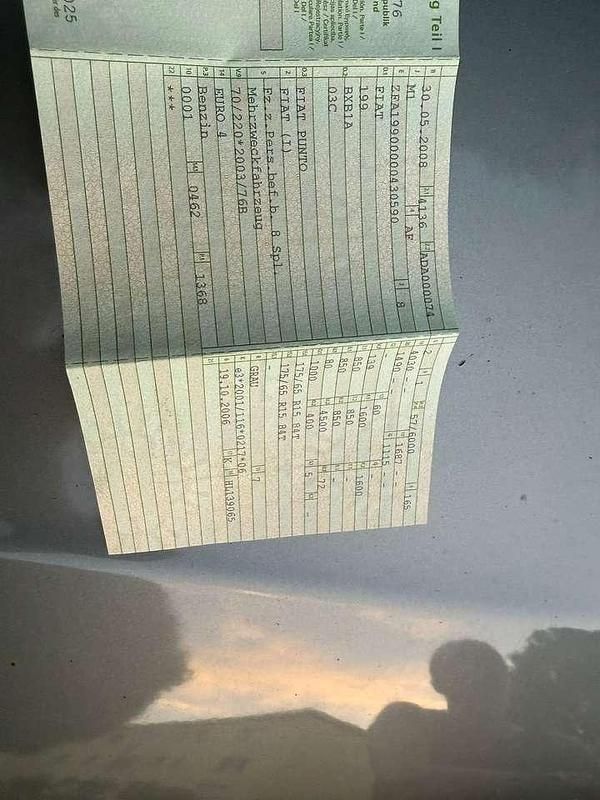 g Teil I
76
publik
nd
025
B 30.05.2008 2.1 4136 2.2 ADA000074
J M1 4 AF
E ZFA19900000430590 3 8
D.1 FIAT
199
D.2 BXB1A
03C
D.3 FIAT PUNTO
2 FIAT (I)
5 Fz.z.Pers.bef.b. 8 Spl.
Mehrzweckfahrzeug
V.9 70/220*2003/76B
14 EURO 4
P.3 Benzin
10 0001 14.1 0462 P.1 1368
22 ***
2
57/6000 165
4030 - -
1490 - 1687 -
- 1115 -
139 60
850 1600 1600
850 850 -
850 850 -
80 4500 72
1000 400 5 -
175/65 R15 84T
175/65 R15 84T
-
GRAU 7
e3*2001/116*0217*06
19.10.2006 K